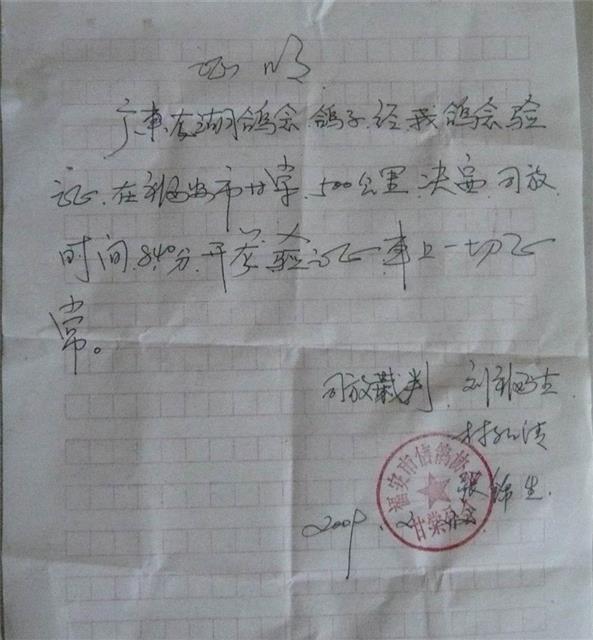 证明
广东龙湖鸽会鸽子.经我鸽会验
证.在福安市甘棠.500公里决赛.司放
时间.8.40分.开笼验证.车上一切正
常。
司放裁判.刘福生
林
张锦生.
2009.2
福安市信鸽协会
甘棠分会